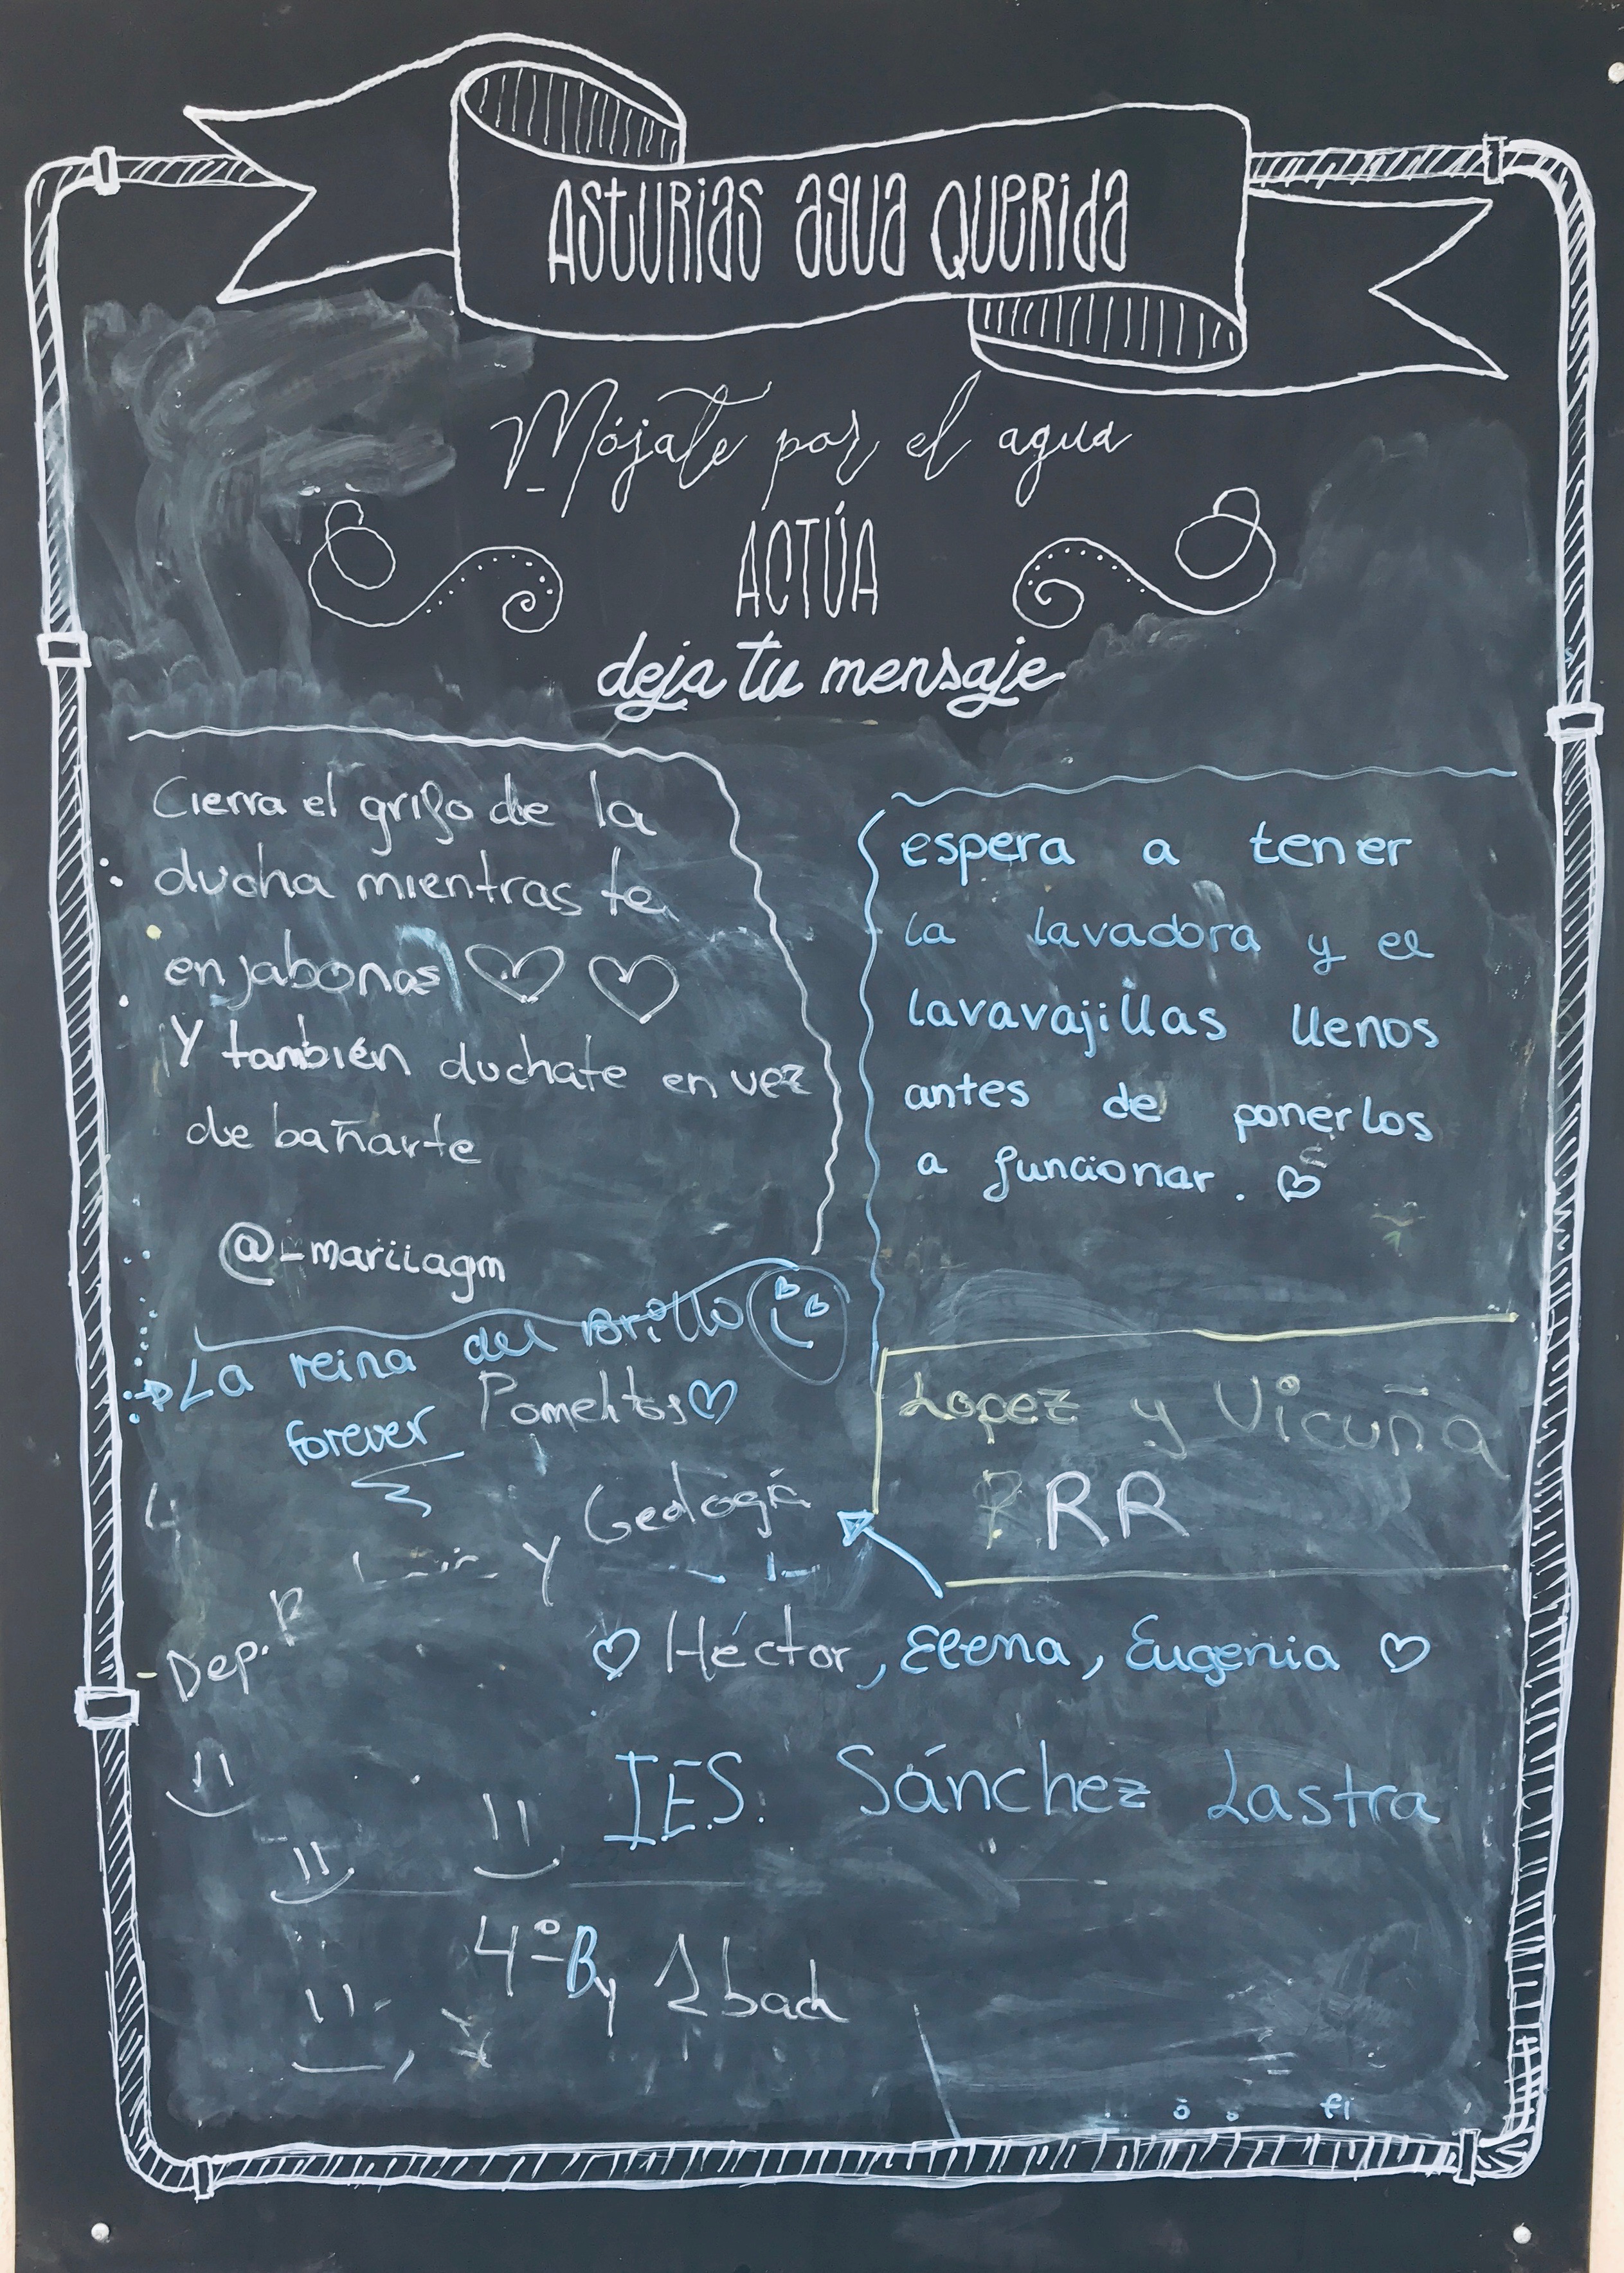 Asturias agua querida
Mójate por el agua
ACTÚA
deja tu mensaje
Cierra el grifo de la
ducha mientras te
enjabonas
Y también duchate en vez
de bañarte
@_mariiagm
espera a tener
la lavadora y el
lavavajillas llenos
antes de ponerlos
a funcionar.
La reina del Brillo
forever
Pomelitos
Lopez y Vicuña
RR
y Geología
Dep.
Héctor, Elena, Eugenia
I.E.S. Sánchez Lastra
4ºB y 1 bach